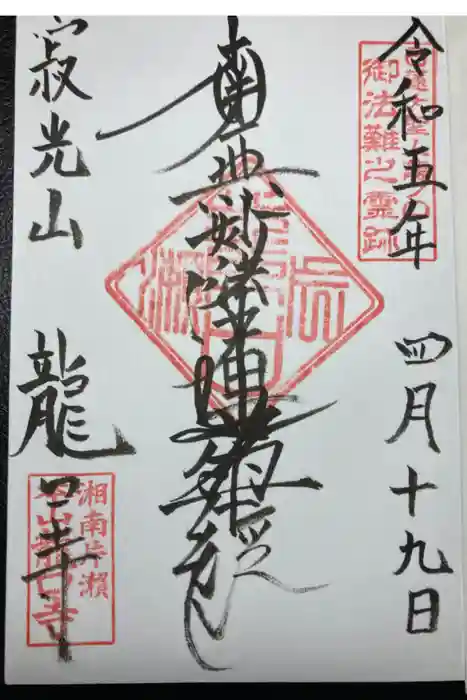 令和五年
四月十九日
御法難之霊跡
南無妙法蓮華経
寂光山
龍口寺
湘南片瀬
本山龍口寺